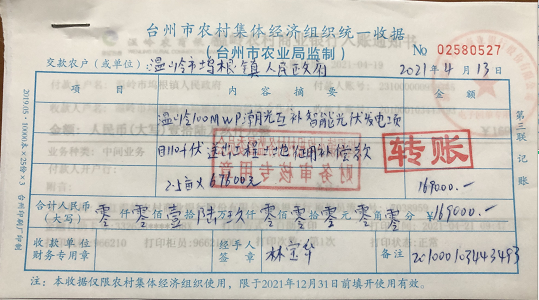 台州市农村集体经济组织统一收据
(台州市农业局监制)
No 02580527
交款农户(或单位): 温岭市坞根镇人民政府 2021年4月13日
项目 内容摘要 金额
温岭100MWP潮光互补智能光伏发电项
目110千伏送出工程土地征用补偿款
2.5亩×67600元 169000.—
转账
财务审核专用章
合计人民币(大写) 零仟零佰壹拾陆万玖仟零佰零拾零元零角零分 ¥169000.—
收款单位财务专用章 经手人签章 备注 201000103443493
注:本收据仅限农村集体经济组织使用,限于2021年12月31日前填开使用有效。
第三联记账
2019.05 - 10000本×25份×3